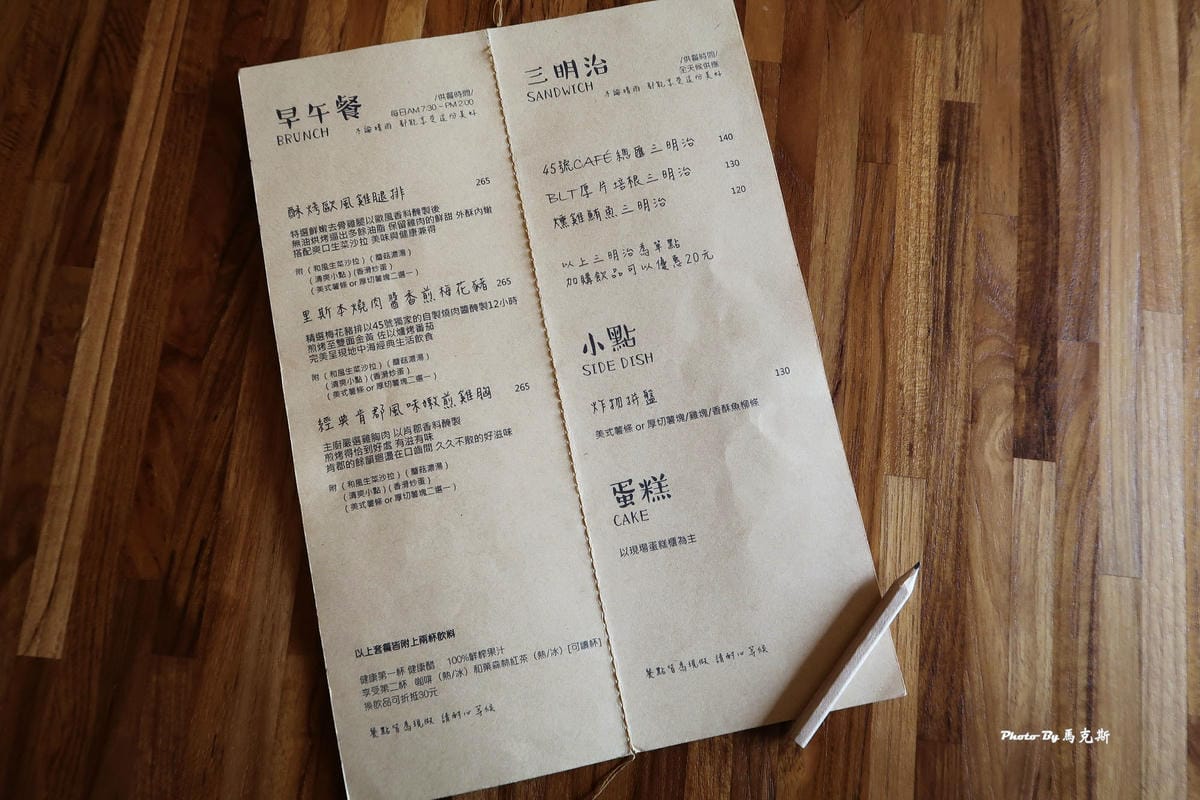 早午餐
BRUNCH
/供餐時間/
每日AM 7:30~PM 2:00
不論晴雨 都能享受這份美好
酥烤歐風雞腿排 265
特選鮮嫩去骨雞腿以歐風香料醃製後
無油烘烤逼出多餘油脂 保留雞肉的鮮甜 外酥內嫩
搭配爽口生菜沙拉 美味與健康兼得
附 ( 和風生菜沙拉 ) ( 蘑菇濃湯 )
( 清爽小點 ) ( 香滑炒蛋 )
( 美式薯條 or 厚切薯塊二選一 )
里斯本燒肉醬香煎梅花豬 265
精選梅花豬排以45號獨家的自製燒肉醬醃製12小時
煎烤至雙面金黃 佐以爐烤番茄
完美呈現地中海經典生活飲食
附 ( 和風生菜沙拉 ) ( 蘑菇濃湯 )
( 清爽小點 ) ( 香滑炒蛋 )
( 美式薯條 or 厚切薯塊二選一 )
經典肯郡風味嫩煎雞胸 265
主廚嚴選雞胸肉 以肯郡香料醃製
煎烤得恰到好處 有滋有味
肯郡的餘韻迴盪在口齒間 久久不散的好滋味
附 ( 和風生菜沙拉 ) ( 蘑菇濃湯 )
( 清爽小點 ) ( 香滑炒蛋 )
( 美式薯條 or 厚切薯塊二選一 )
以上套餐皆附上兩杯飲料
健康第一杯 健康醋 100%鮮榨果汁
享受第二杯 咖啡（熱/冰）和菓森林紅茶（熱/冰）[可續杯]
換飲品可折抵30元
餐點皆為現做 請耐心等候
三明治
SANDWICH
/供餐時間/
全天候供應
不論晴雨 都能享受這份美好
45號CAFÉ總匯三明治 140
BLT厚片培根三明治 130
燻雞鮪魚三明治 120
以上三明治為單點
加購飲品可以優惠20元
小點
SIDE DISH
炸物拼盤 130
美式薯條 or 厚切薯塊/雞塊/香酥魚柳條
蛋糕
CAKE
以現場蛋糕櫃為主
餐點皆為現做 請耐心等候
Photo By 馬克斯